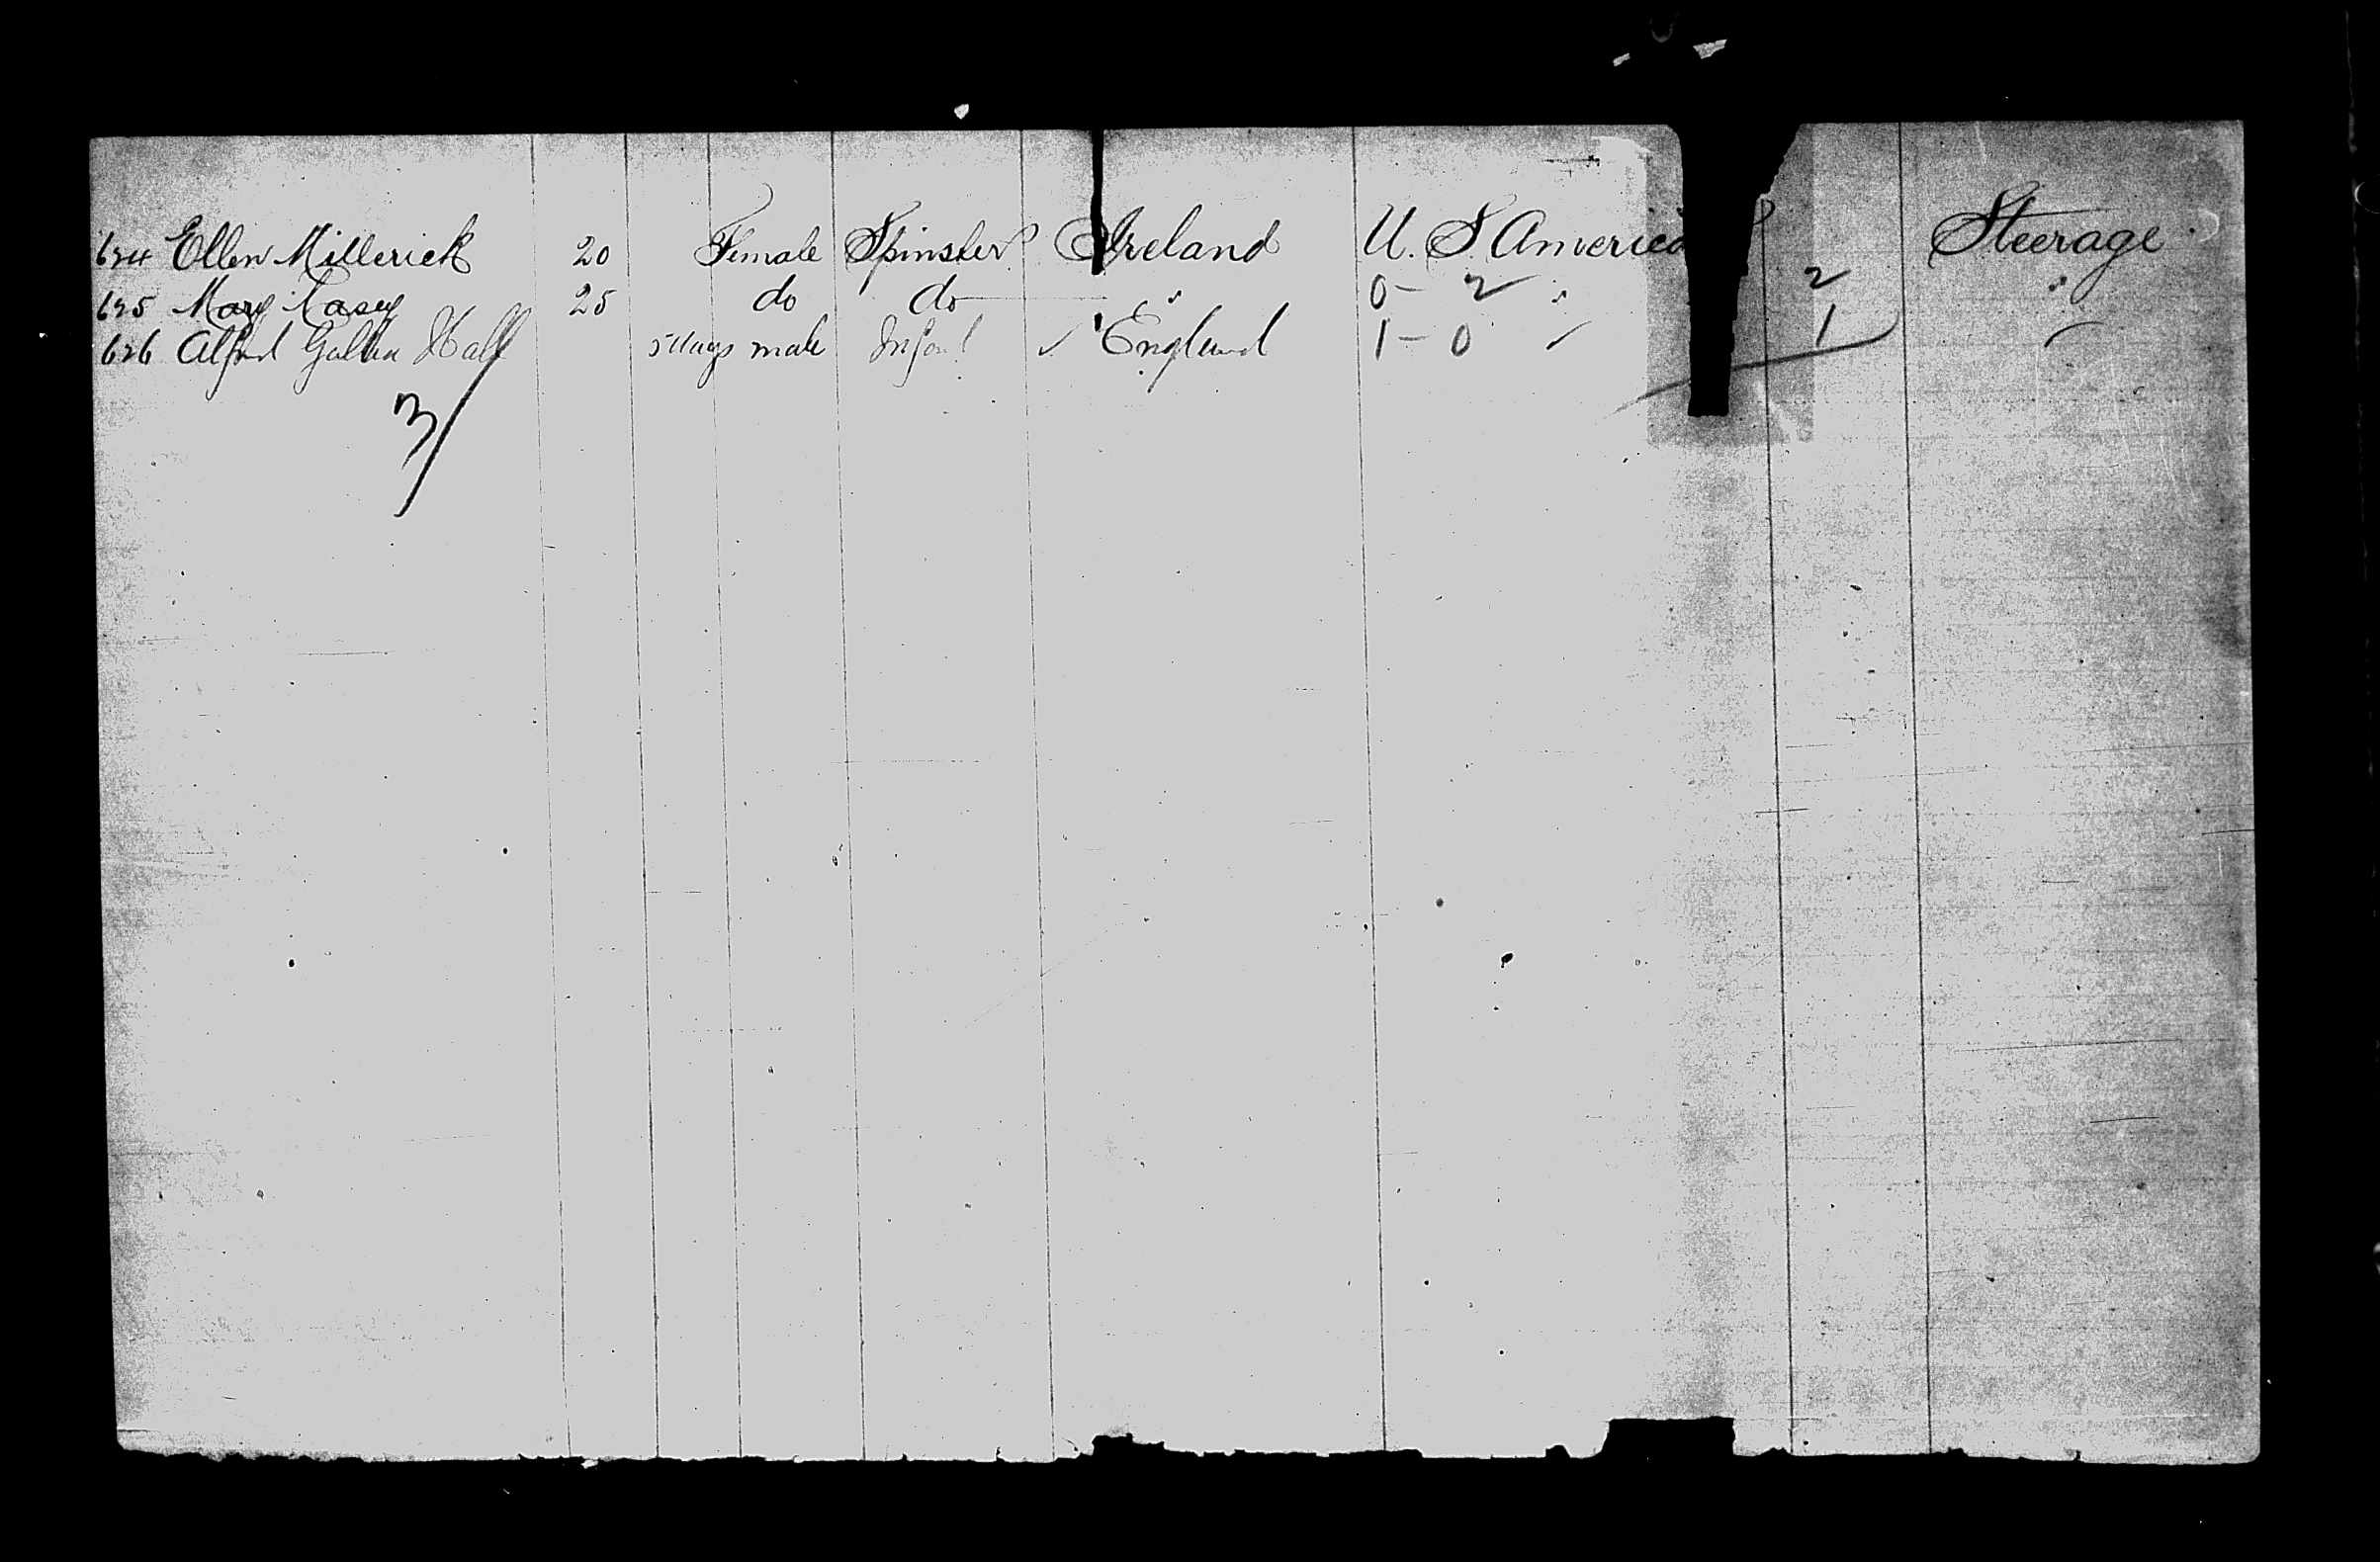 624 Ellen Millerick 20 Female Spinster Ireland U. S. America Steerage
625 Mary Casey 25 do do " 0 - 2 " 2 "
626 Alfred Hall 5 days male Infant England 1 - 0 1
3/